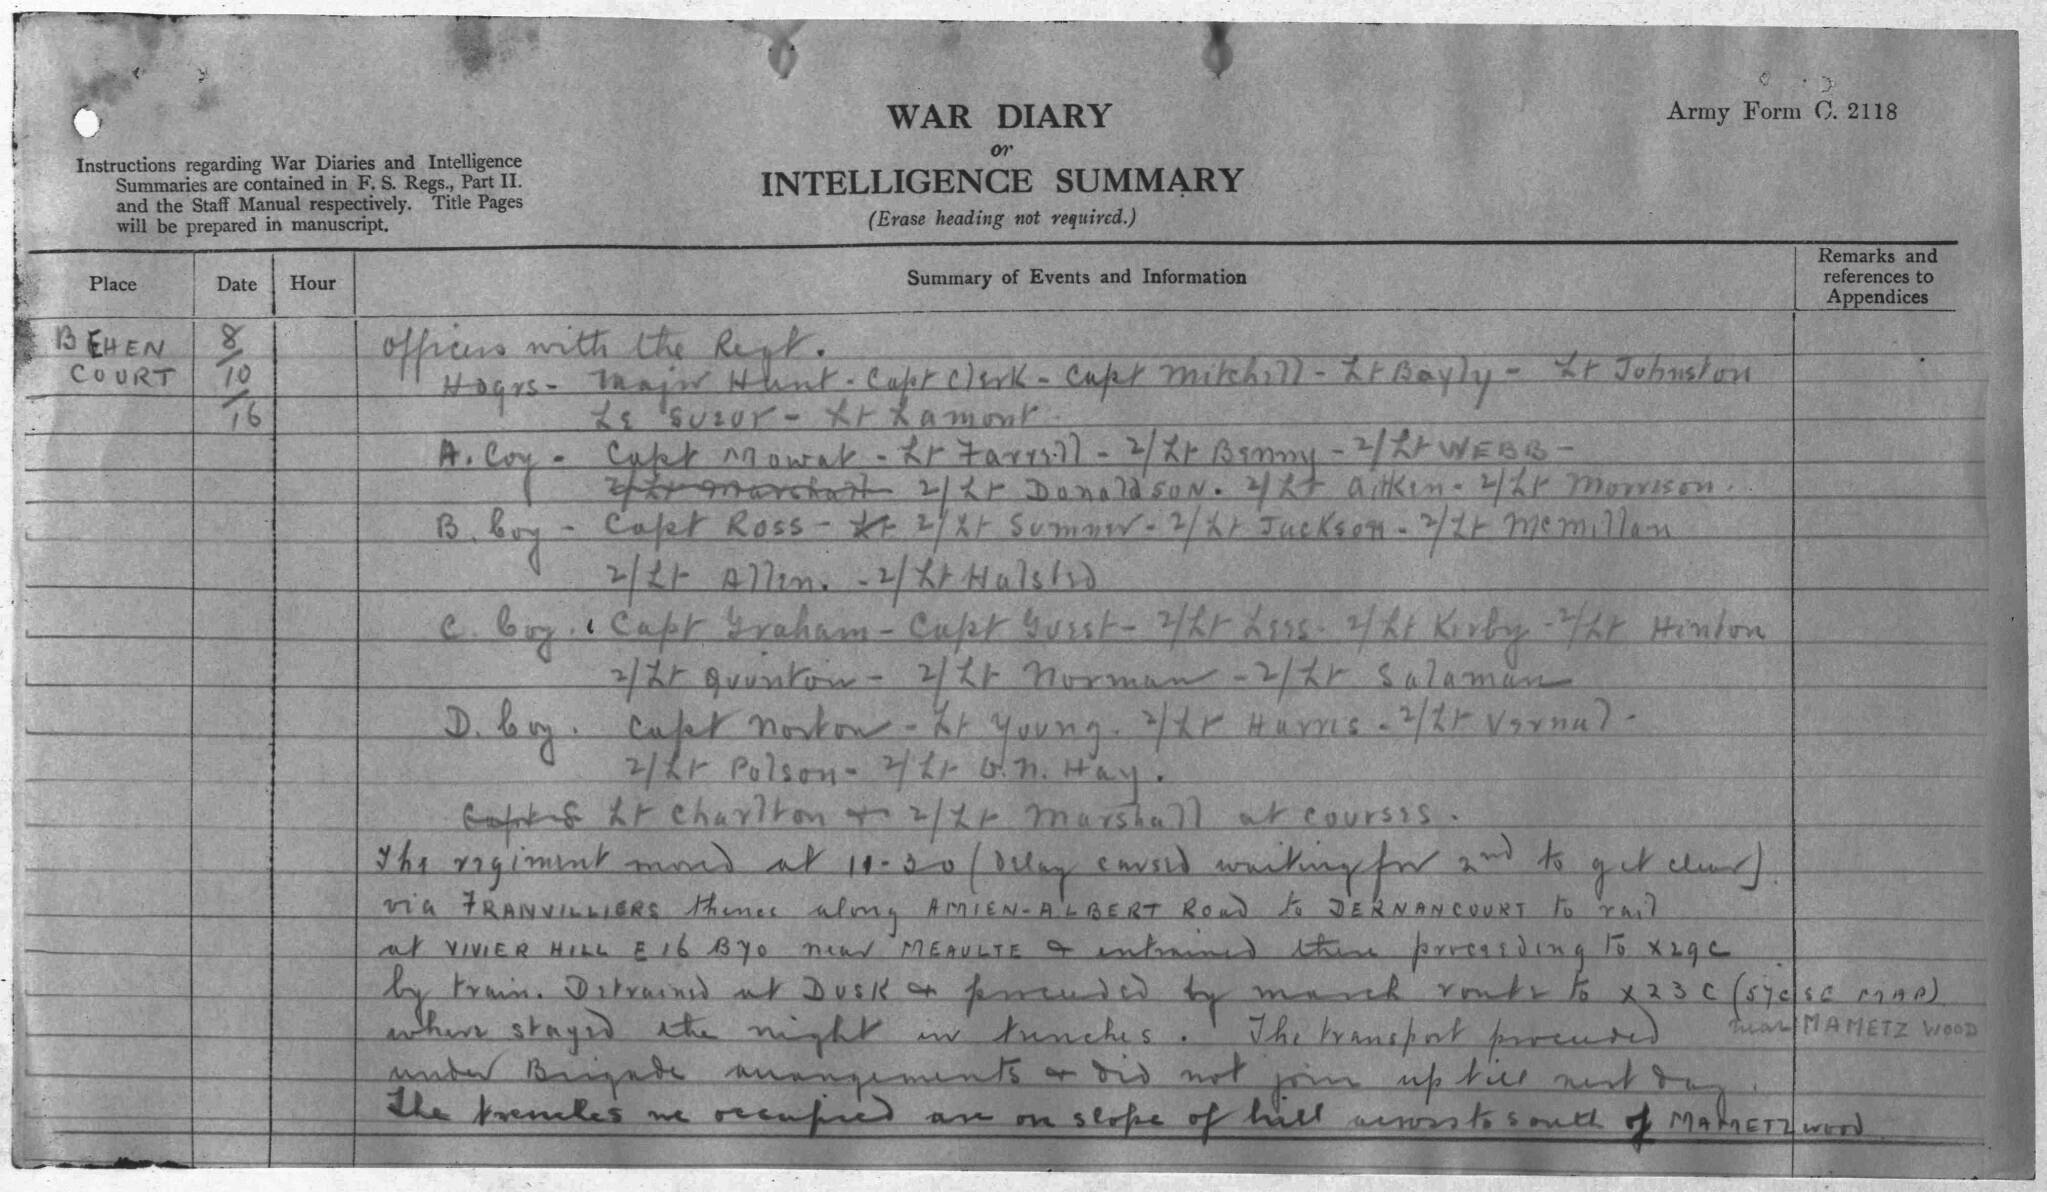 WAR DIARY
or
INTELLIGENCE SUMMARY
(Erase heading not required.)
Army Form C. 2118
Instructions regarding War Diaries and Intelligence
Summaries are contained in F. S. Regs., Part II.
and the Staff Manual respectively. Title Pages
will be prepared in manuscript.
Place Date Hour Summary of Events and Information Remarks and references to Appendices
BEHEN COURT 8/10/16 Officers with the Regt.
Hdqrs - Major Hunt - Capt Clerk - Capt Mitchell - Lt Bayly - Lt Johnston
Le Sueur - Lt Lamont.
A. Coy - Capt Mowat - Lt Farrell - 2/Lt Benny - 2/Lt WEBB -
2/Lt Marshall 2/Lt Donaldson. 2/Lt Aitken - 2/Lt Morrison.
B. Coy - Capt Ross - Lt 2/Lt Sumner - 2/Lt Jackson - 2/Lt McMillan
2/Lt Allen. - 2/Lt Halsted
C. Coy. Capt Graham - Capt Guest - 2/Lt Lees. 2/Lt Kirby - 2/Lt Hinton
2/Lt Quinton - 2/Lt Norman - 2/Lt Salaman
D. Coy. Capt Norton - Lt Young. 2/Lt Harris - 2/Lt Vernal -
2/Lt Polson - 2/Lt O.N. Hay.
Lt Charlton & 2/Lt Marshall at courses.
The regiment moved at 11-30 (Delay caused waiting for 2nd to get clear)
via FRANVILLIERS thence along AMIEN-ALBERT Road to DERNANCOURT to rail
at VIVIER HILL E 16 B70 near MEAULTE & entrained there proceeding to X29C
by train. Detrained at DUSK & proceeded by march route to X23C (57c SE MAP)
near MAMETZ WOOD
where stayed the night in trenches. The transport proceeded
under Brigade arrangements & did not join up till next day.
The trenches we occupied are on slope of hill across to south of MAMETZ wood